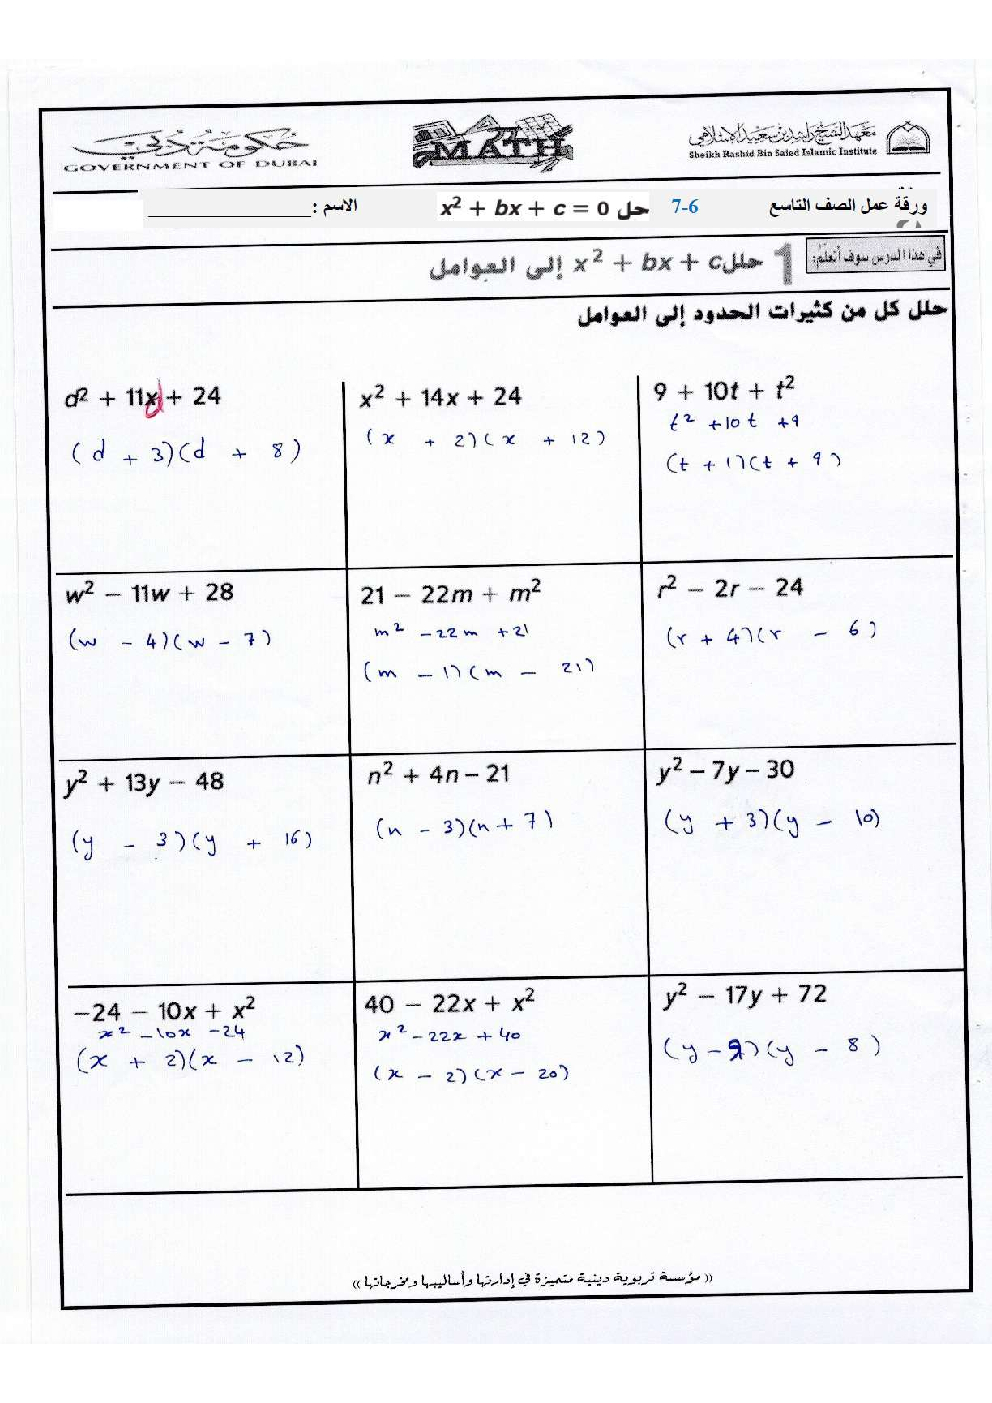 حكومة دبي
GOVERNMENT OF DUBAI
MATH
معهد الشيخ راشد بن سعيد الإسلامي
Sheikh Rashid Bin Saied Islamic Institute
ورقة عمل الصف التاسع
7-6
حل x² + bx + c = 0
الاسم : ____________________
في هذا الدرس سوف أتعلم:
1 حلل x² + bx + c إلى العوامل
حلل كل من كثيرات الحدود إلى العوامل
d² + 11x + 24
d
(d + 3)(d + 8)
x² + 14x + 24
(x + 2)(x + 12)
9 + 10t + t²
t² + 10t + 9
(t + 1)(t + 9)
w² − 11w + 28
(w − 4)(w − 7)
21 − 22m + m²
m² − 22m + 21
(m − 1)(m − 21)
r² − 2r − 24
(r + 4)(r − 6)
y² + 13y − 48
(y − 3)(y + 16)
n² + 4n − 21
(n − 3)(n + 7)
y² − 7y − 30
(y + 3)(y − 10)
−24 − 10x + x²
x² − 10x − 24
(x + 2)(x − 12)
40 − 22x + x²
x² − 22x + 40
(x − 2)(x − 20)
y² − 17y + 72
(y − 9)(y − 8)
(( مؤسسة تربوية دينية متميزة في إدارتها وأساليبها ومخرجاتها ))